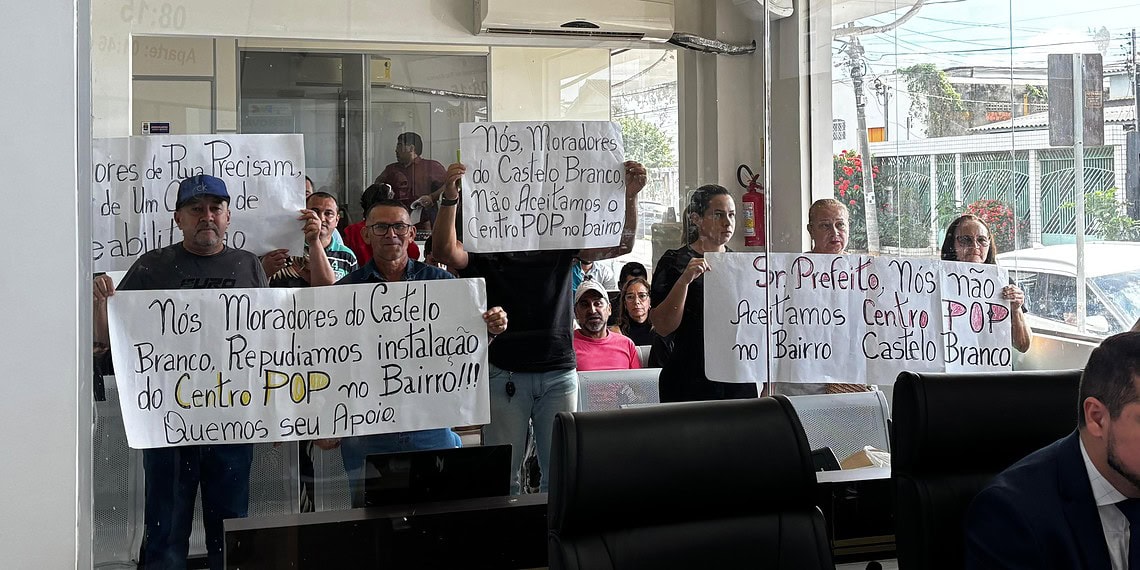 08:15
Aparte: 01:46
ores de Rua Precisam,
de Um C de
eabilit ão
Nós, Moradores
do Castelo Branco,
Não Aceitamos o
Centro POP no bairro
Nós Moradores do Castelo
Branco, Repudiamos instalação
do Centro POP no Bairro!!!
Quemos seu Apoio.
Sr. Prefeito, Nós não
Aceitamos Centro POP
no Bairro Castelo Branco.